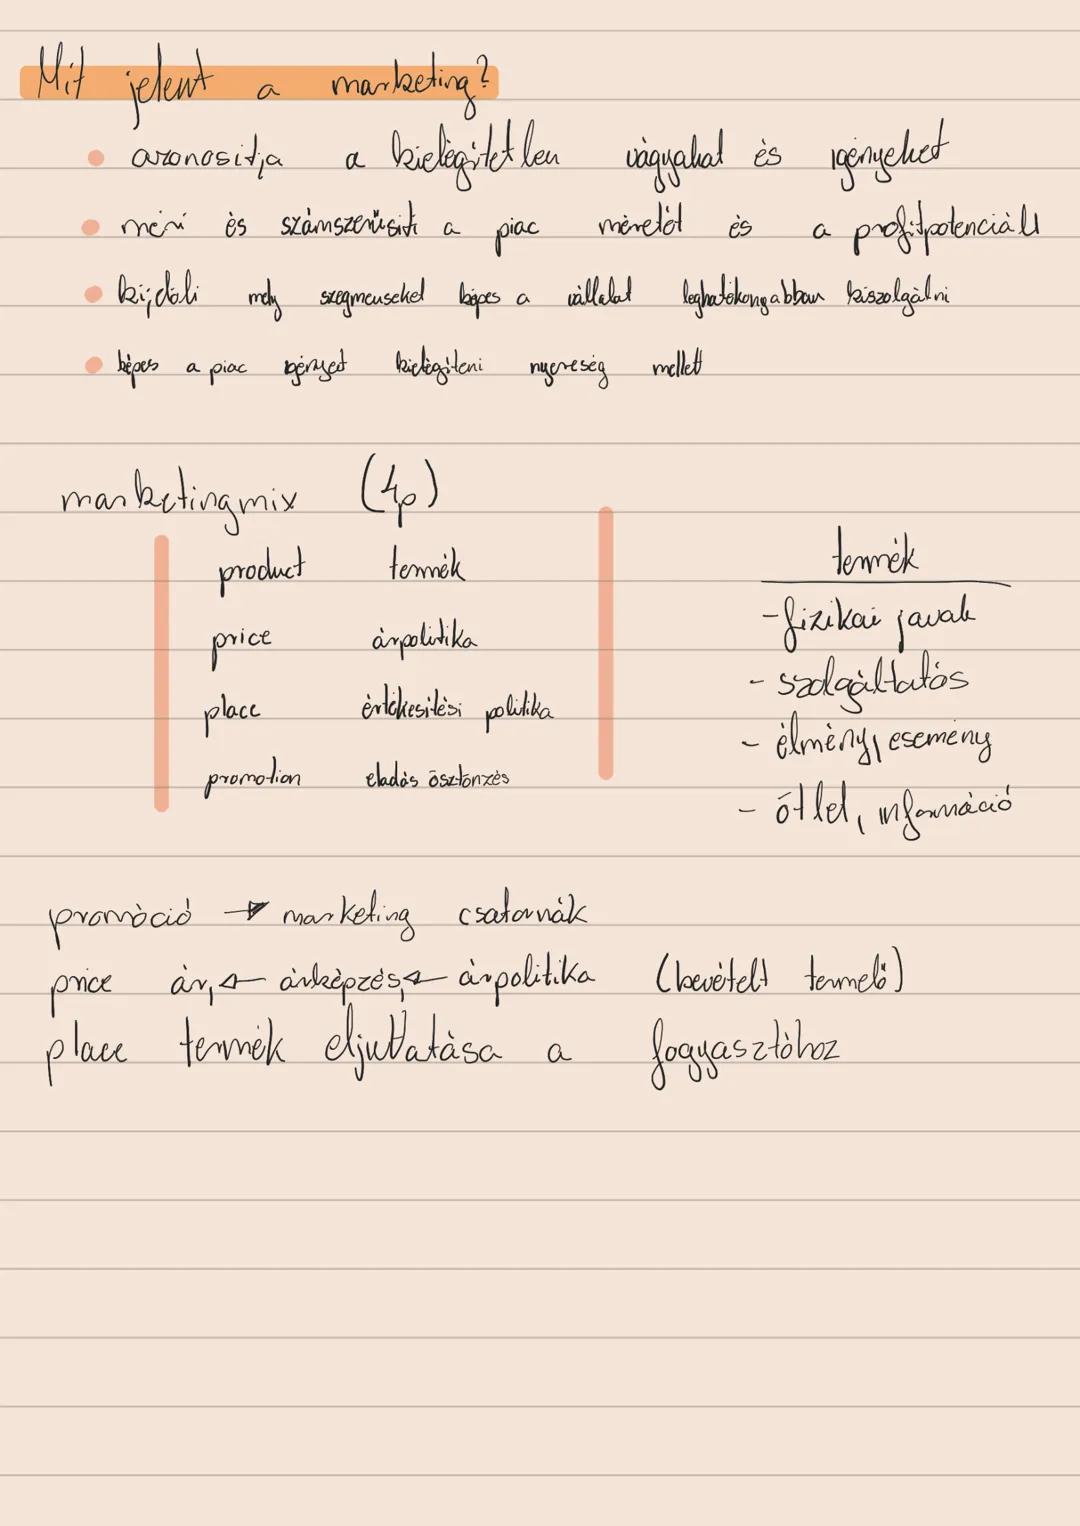 Mit jelent a marketing?
• azonosítja a kielégítetlen vágyakat és igényeket
• méri és számszerűsíti a piac méretét és a profitpotenciált
• kijelöli mely szegmenseket képes a vállalat leghatékonyabban kiszolgálni
• képes a piac igényeit kielégíteni nyereség mellett
marketingmix (4p)
product termék
price árpolitika
place értékesítési politika
promotion eladás ösztönzés
termék
- fizikai javak
- szolgáltatás
- élmény, esemény
- ötlet, információ
promóció → marketing csatornák
price ár, ← árképzés, ← árpolitika (bevételt termelő)
place termék eljuttatása a fogyasztóhoz